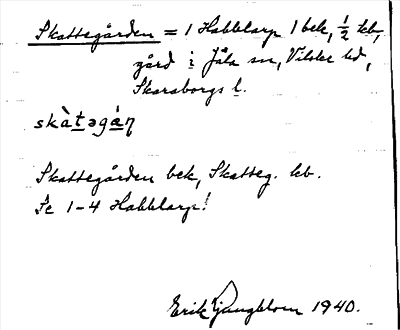 Skattegården = 1 Habblarp 1 bek, ½ kb,
gård i Jåla sn, Vilske hd,
Skaraborgs l.
skàtəgáɳ
Skattegården bek, Skatteg. kb.
Se 1-4 Habblarp!
Erik Ljungblom 1940.